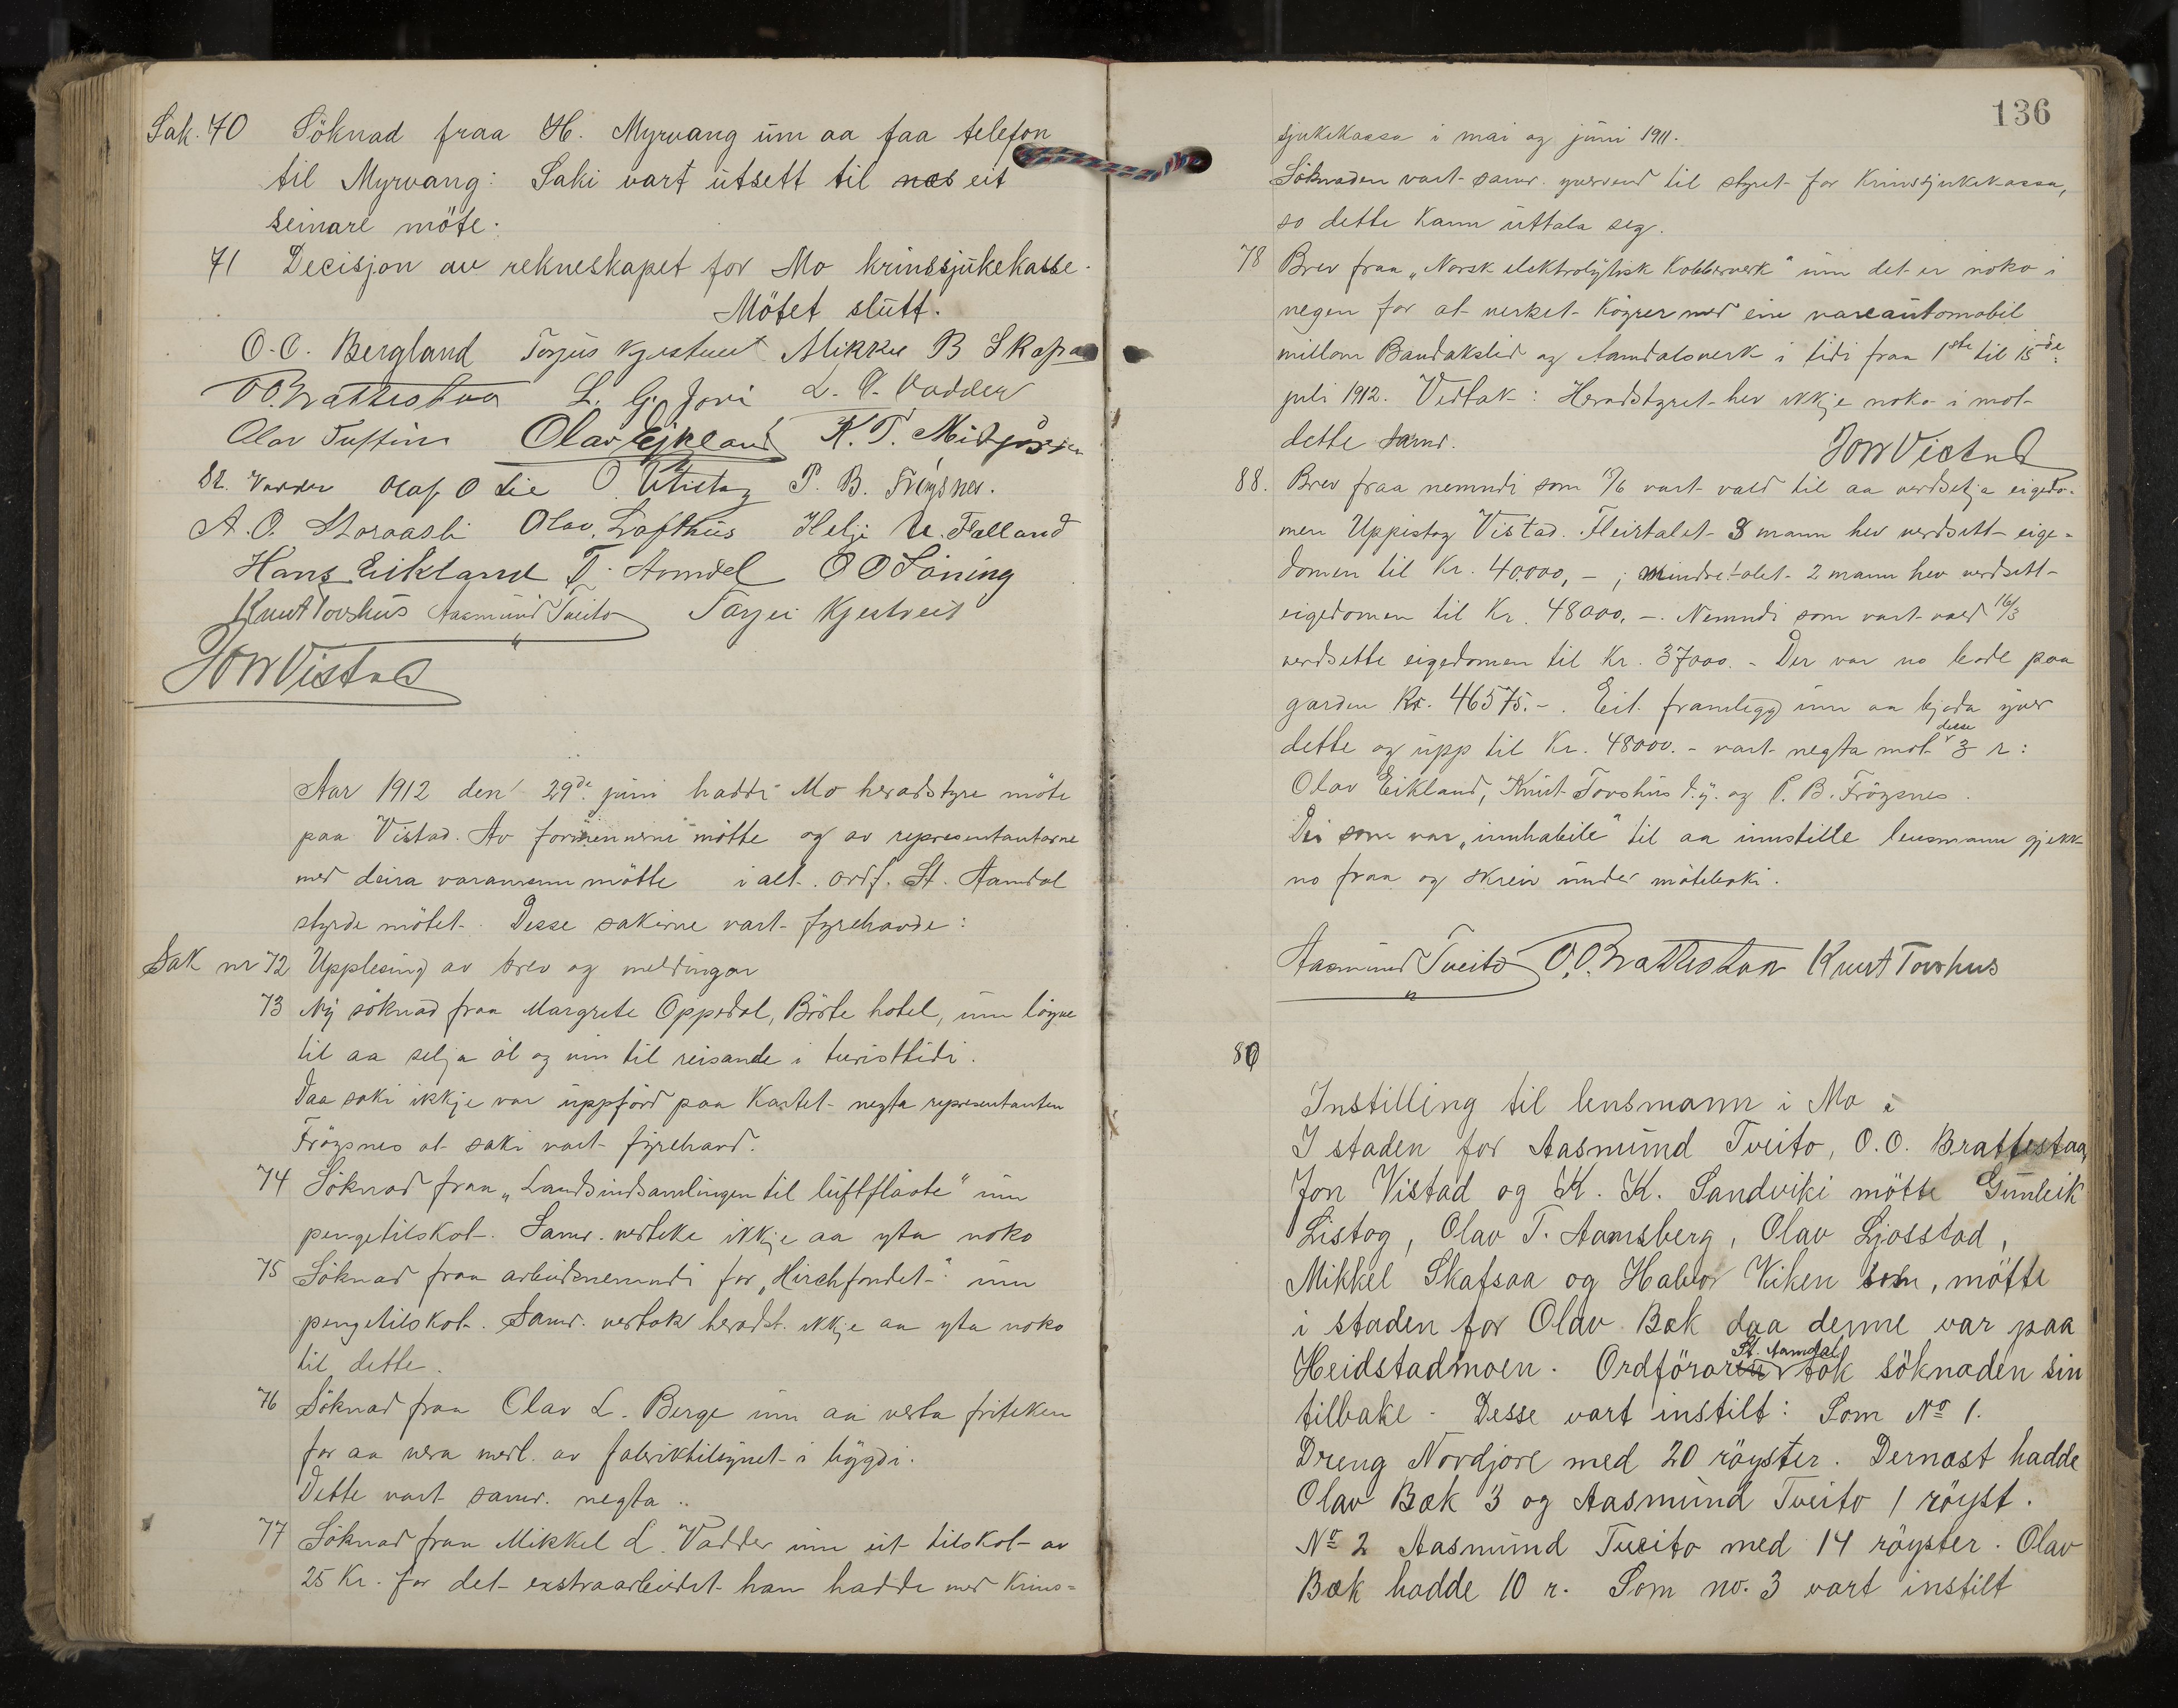 Sak. 70 Söknad fraa H. Myrvang um aa faa telefon
til Myrvang: Saki vart utsett til næs eit
seinare möte.
71 Decisjon av rekneskapet for Mo krinssjukekasse.
Mötet slutt.
O.O. Bergland Torjus Kjestveit Mikkel B Skafsaa
O O. Brattestaa L. G. Jori L. O. Vadder
Olav Tuftin Olav Eikland K. T. Midjös
St. Vadder Olaf O Lie O Utistog P. B. Fröysnes.
A. O. Storaasli Olav Lofthus Helje U. Falland
Hans Eikland T. Aamdal O O Löning
Knut Tovshus Aasmund Tveito Torjei Kjestveit
Jon Vistad
Aar 1912 den 29de juni hadde Mo heradstyre möte
paa Vistad. Av formennerne mötte og av representantarne
med deira varamenn mötte i alt. Ordf. St. Aamdal
styrde mötet. Desse sakerne vart fyrehavde:
Sak nr 72 Upplesing av brev og meldingar
73 Ny söknad fraa Margrete Oppedal, Börte hotel, um löyve
til aa selja öl og vin til reisande i turisttidi.
Daa saki ikkje var uppförd paa Kartet negta representanten
Fröysnes at saki vart fyrehavd.
74 Söknad fraa „Landsindsamlingen til luftflaate" um
pengetilskot. Samr. vedteke ikkje aa yta noko
75 Söknad fraa arbeidsnemndi for „Hirchfondet" um
pengetilskot. Samr. vedtok heradst. ikkje aa yta noko
til dette.
76 Söknad fraa Olav L. Berge um aa verta friteken
for aa vera medl. av fabriktilsynet i bygdi.
Dette vart samr. negta.
77 Söknad fraa Mikkel L. Vadder um eit tilskot av
25 Kr. for det extraarbeidet han hadde med Krins-
136
sjukekassa i mai og juni 1911.
Söknaden vart samr. yversend til styret for Krinssjukekassa,
so dette kann uttala seg.
78 Brev fraa „Norsk elektrolytisk Kobberverk" um det er noko i
vegen for at verket köyrer med ein vareautomobil
millom Bandakslid og Aamdalsverk i tidi fraa 1ste til 15de
juli 1912. Vedtak: Heradstyret hev ikkje noko i mot
dette samr. Jon Vistad
88. Brev fraa nemndi som /6 vart vald til aa verdsetja eigedo-
men Uppistog Vistad. Fleirtalet 3 mann hev verdsett eige-
domen til Kr. 40,000, - ; mindretalet 2 mann hev verdsett
eigedomen til Kr. 48000, -. Nemndi som vart vald 16/3
verdsette eigedomen til Kr. 37000. - Der var no bode paa
garden Kr. 46575. -. Eit framlegg um aa bjoda yver
dette og upp til Kr. 48000. - vart negta mot desse 3 r:
Olav Eikland, Knut Tovshus d.y. og P. B. Fröysnes.
Dei som var „innhabile" til aa innstille lensmann gjekk
no fraa og skreiv under möteboki.
Aasmund Tveito O.O. Brattestaa Knut Tovshus
80
Instilling til lensmann i Mo
I staden for Aasmund Tveito, O.O. Brattestaa,
Jon Vistad og K. K. Sandviki mötte Gunleik
Listog, Olav T. Aamsberg, Olav Ljosstad,
Mikkel Skafsaa og Halvor Viken som, mötte
i staden for Olav Bæk daa denne var paa
Heidstadmoen. Ordföraren St. Aamdal tok söknaden sin
tilbake. Desse vart instilt: Som No 1.
Dreng Nordjore med 20 röyster. Dernæst hadde
Olav Bæk 3 og Aasmund Tveito 1 röyst.
No 2 Aasmund Tveito med 14 röyster. Olav
Bæk hadde 10 r. Som no. 3 vart instilt